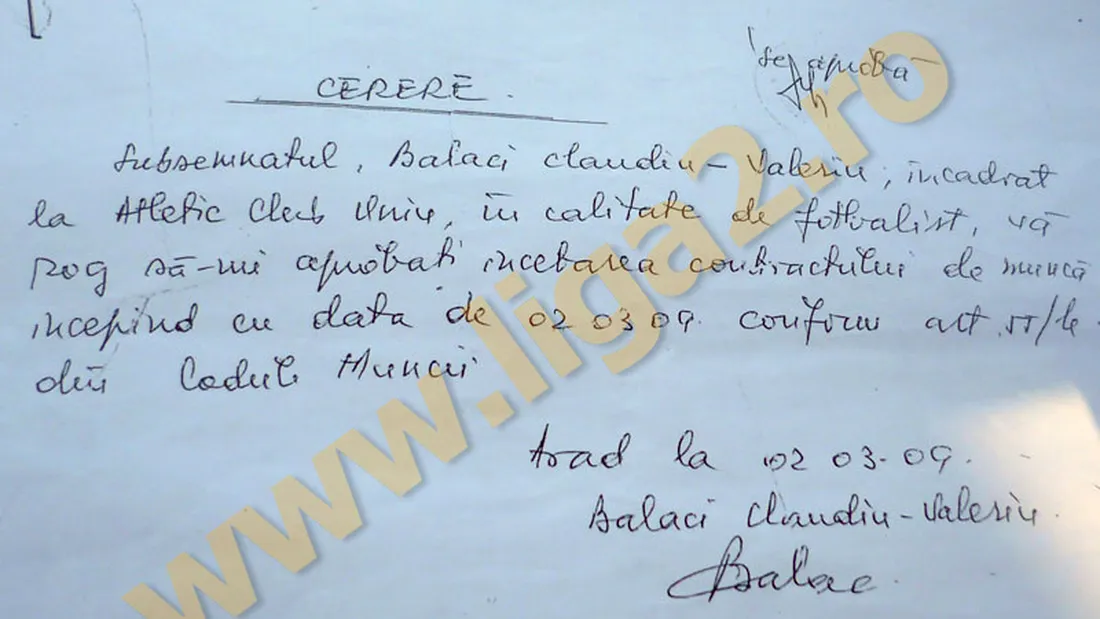 se aproba
CERERE.
Subsemnatul, Balaci Claudiu-Valeriu, incadrat
la Atletic Club Uniu, în calitate de fotbalist, vă
rog să-mi aprobati incetarea contractului de muncă
incepind cu data de 02 03 09. conform art 55/b
din Codul Muncii
Arad la 02 03-09.
Balaci Claudiu-Valeriu.
Balac
www.liga2.ro